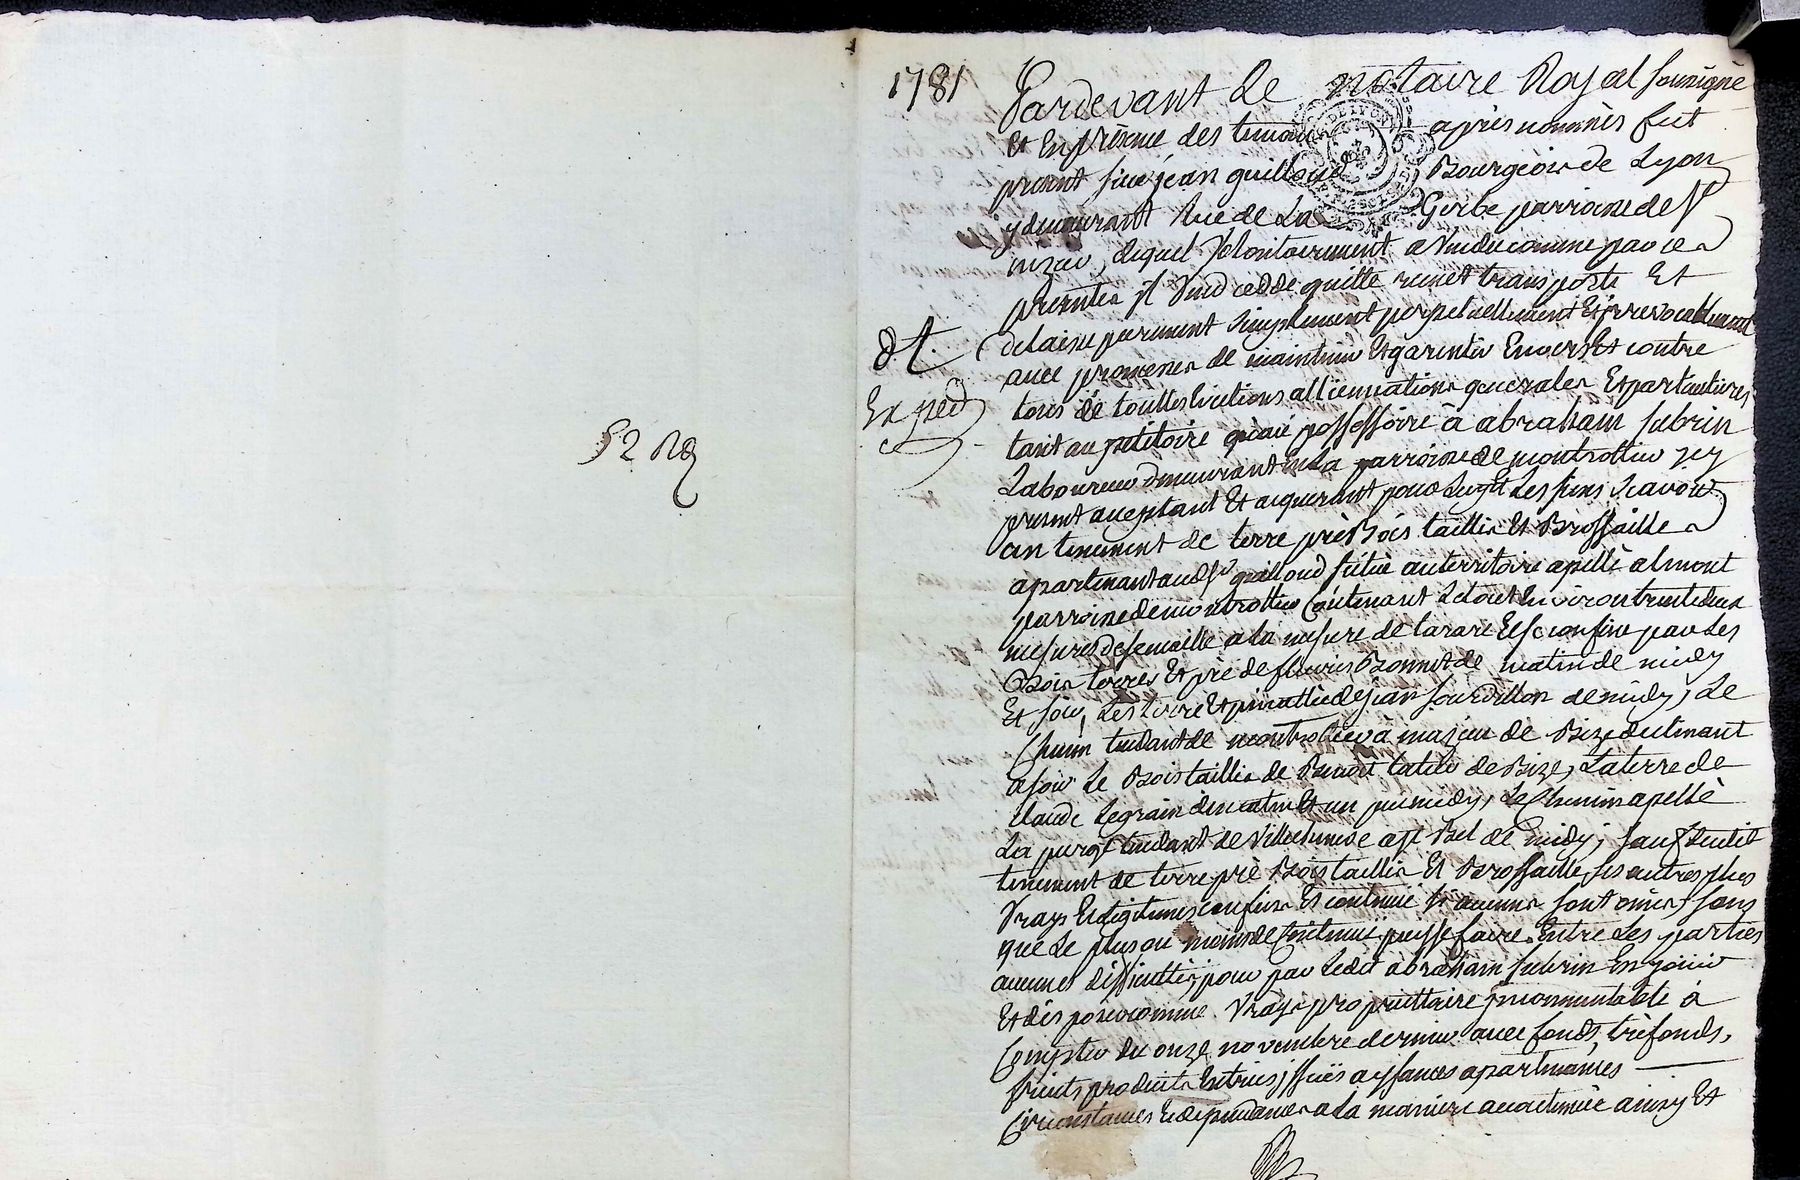 1781
Pardevant Le notaire Royal soussigné
Et En présence des temoins après nommés fut
present sieur jean guilloud Bourgeois de Lyon
y demeurant Rue de La Gerbe parroisse de St
nizier, Lequel volontairement a vendu comme par ces
presentes il vend cedde quitte remet transporte Et
delaisse purement simplement perpetuellement Et irrevocablement
dt.
avec promesse de maintenir Et garentir Envers Et contre
Exped
tous de touttes Evictions allienations generales Et particulieres
tant au petitoire qu'au possessoire à abraham subrin
Laboureur demeurant en La parroisse de montrottier icy
present acceptant Et acquerant pour Luy Et Les siens scavoir
un tenement de terre pré Bois taillis Et Brossaille
apartenant audt sr guilloud situé au territoire apellé almont
parroisse de montrottier Contenant Le tout Environ trente deux
mesures de semaille a la mesure de tarare Et se confine par Les
Bois terres Et pré de fleurie Bonnet de matin de midy
Et soir, Les terre Et de jean de midy, Le
Chemin tendant de montrotier à de Bize declinant
a soir Le Bois taillis de Benoit de Bize, La terre de
Claude Legrain de matin Et un peu midy, Le Chemin apellé
La tendant de Villecheneve de midy, sauf dudit
tenement de terre pré Bois taillis Et Brossaille ses autres plus
Vrays Et Legitimes confins Et contenue si aucuns sont omis, sans
que Le plus ou moins de Contenue puisse faire Entre Les parties
aucunes difficultés, pour par Ledit abraham subrin En jouir
Et disposer comme Vray proprietaire incommutable à
Compter du onze novembre dernier avec fonds, tréfonds,
fruits produits Entrées, issües aysances apartenances
Circonstances Et dependances a La maniere accoutumée ainsy Et
52 Rd